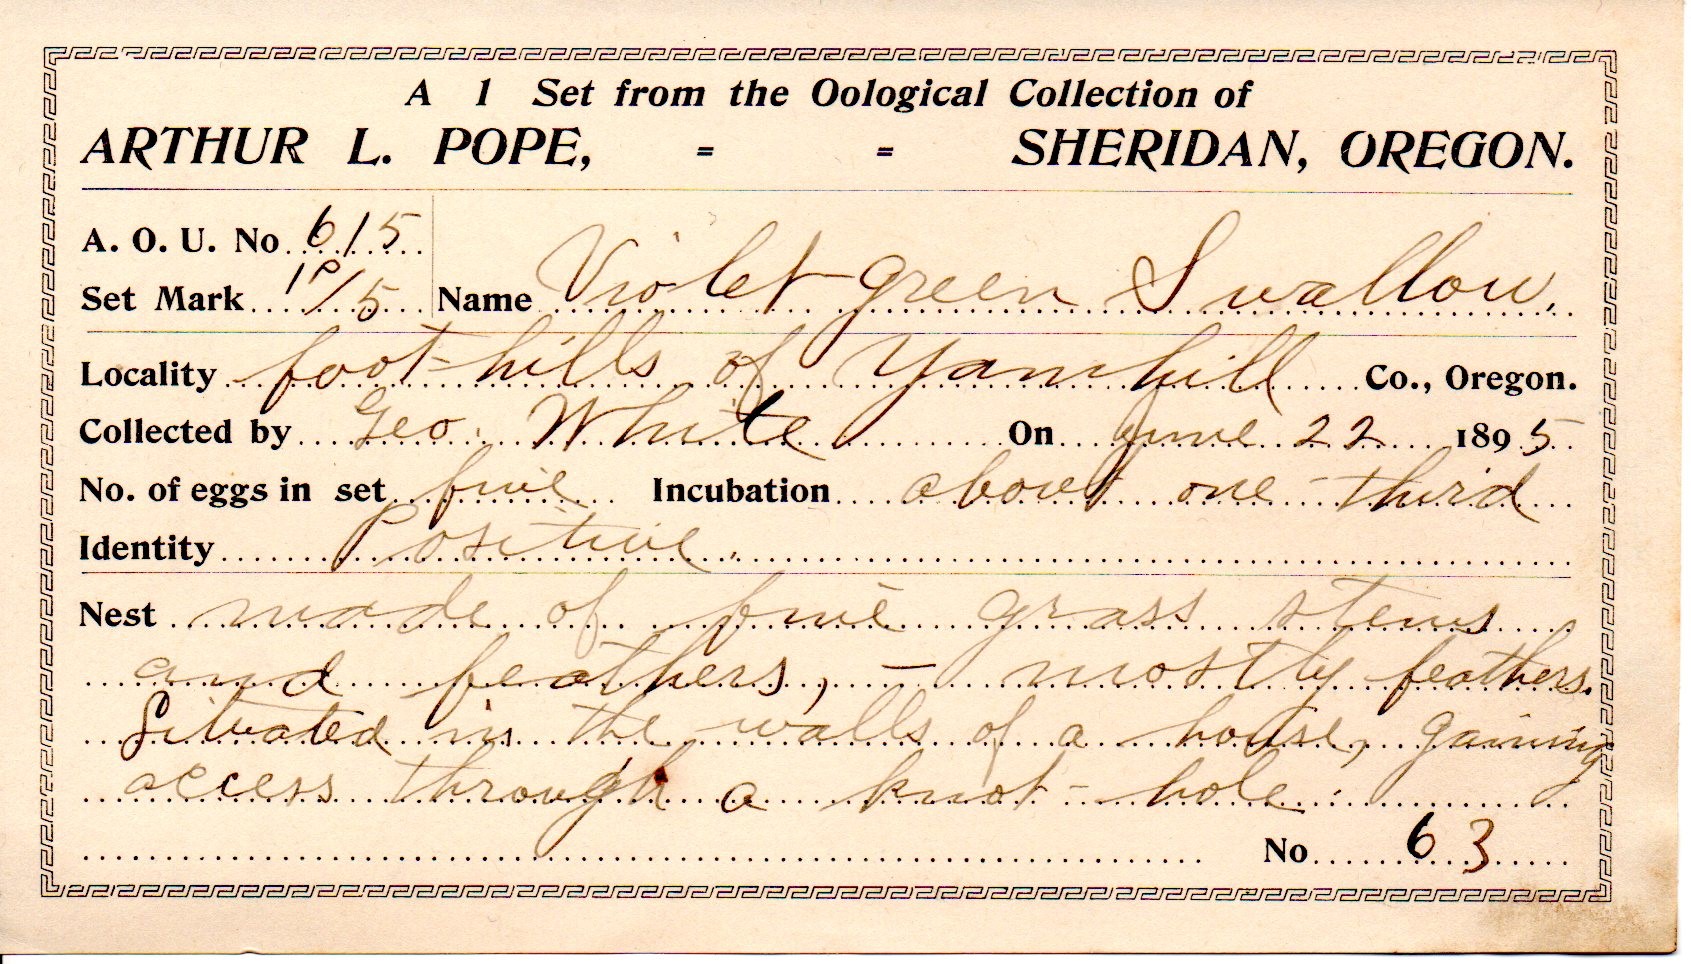 A 1 Set from the Oological Collection of
ARTHUR L. POPE, = = SHERIDAN, OREGON.
A. O. U. No 615
Set Mark 1P/5 Name Violet-green Swallow.
Locality foot-hills of Yamhill Co., Oregon.
Collected by Geo. White On June 22 1895
No. of eggs in set five Incubation about one-third
Identity Positive.
Nest made of fine grass stems
and feathers, – mostly feathers.
Situated in the walls of a house, gaining
access through a knot-hole.
No 63